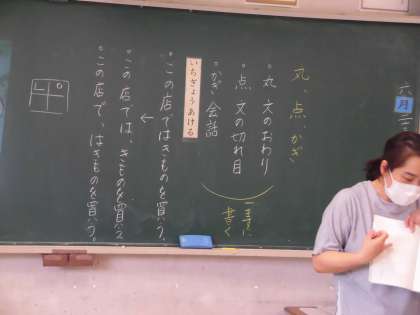 六月二
丸、点、かぎ
。丸 文のおわり
。点 文の切れ目
。かぎ 会話
一ますに
書く
いちぎょうあける
。この店ではきものを買う。
。この店では、きものを買う。
。この店で、はきものを買う。